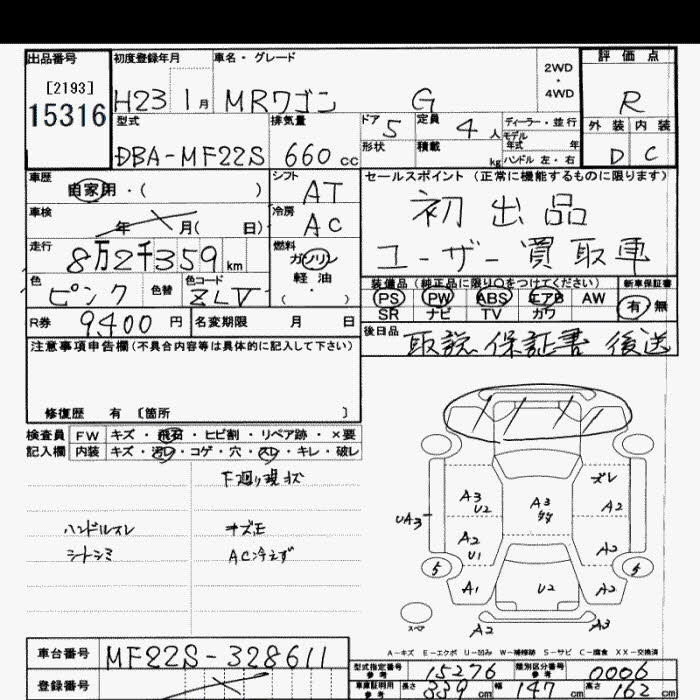 出品番号
[2193]
15316
初度登録年月
H23 1月
車名・グレード
MRワゴン G
2WD
・
4WD
評価点
R
外装 内装
D C
型式
DBA-MF22S
排気量
660 cc
ドア 5
形状
定員 4 人
積載 kg
ディーラー・並行
モデル年式 年
ハンドル 左・右
車歴
自家用・( )
シフト
AT
車検
年 月( 日)
冷房
AC
走行
8万2千359 km
燃料
ガソリン
軽油
( )
色
ピンク
色替
色コード
ZLV
R券 9,400 円
名変期限 月 日
セールスポイント(正常に機能するものに限ります)
初出品
ユーザー買取車
装備品(純正品に限り○をつけてください)
PS PW ABS エアB AW
SR ナビ TV カワ
新車保証書
有・無
後日品
取説 保証書 後送
注意事項申告欄(不具合内容等は具体的に記入して下さい)
修復歴 有 〔箇所 〕
検査員 FW キズ・飛石・ヒビ割・リペア跡・×要
記入欄 内装 キズ・汚レ・コゲ・穴・スレ・キレ・破レ
下廻り現状
ハンドルスレ
シートシミ
キズ凹
AC冷えず
ズレ
A3 U2
A3
A2
UA3
A2 U1
A2
5
5
A1
U2
A2
スペア
A2
A3
A-キズ E-エクボ U-凹み W-補修跡 S-サビ C-腐食 XX-交換済
車台番号 MF22S-328611
登録番号
型式指定番号 参考 15276
類別区分番号 参考 0006
車庫証明用 参考 長さ 339 cm 幅 147 cm 高さ 162 cm